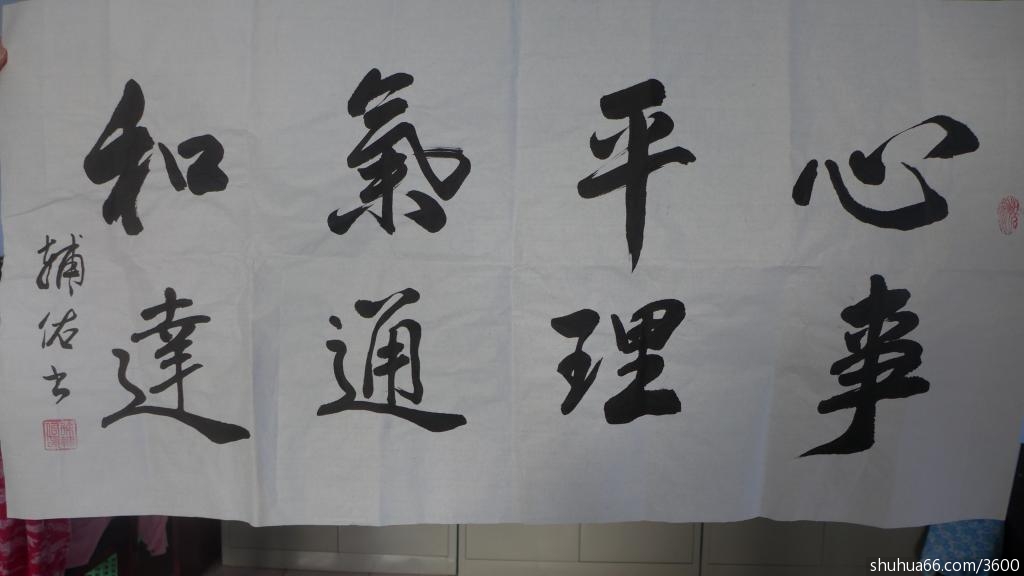 心平氣和
事理通達
輔佑书
shuhua66.com/3600